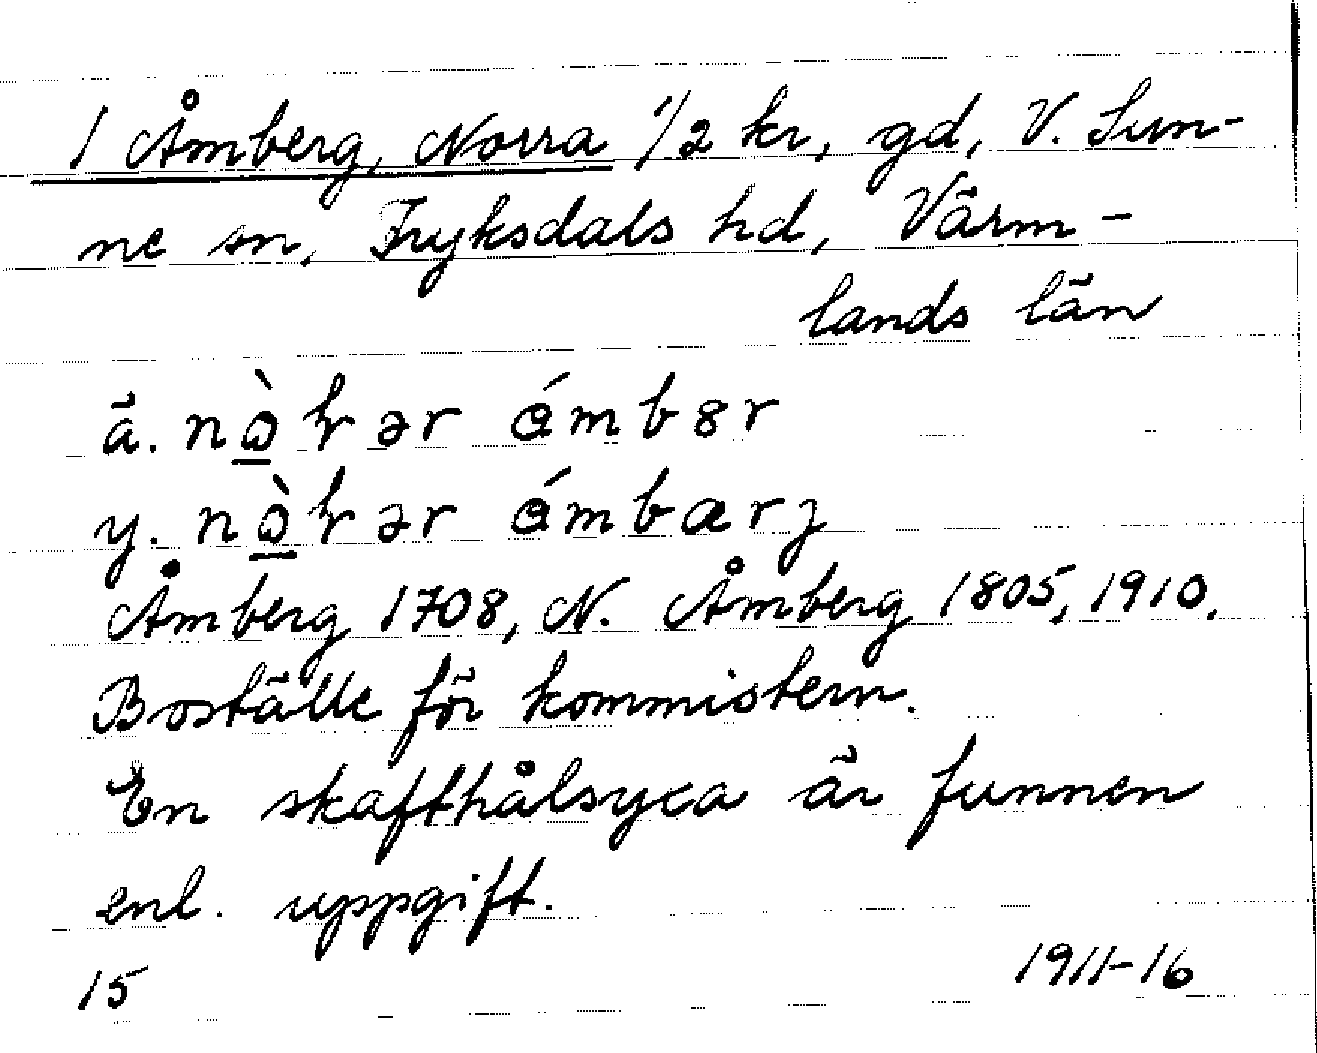 1 Åmberg, Norra 1/2 kr, gd, V. Sun-
ne sn, Fryksdals hd, Värm-
lands län
ä.
y.
Åmberg 1708, N. Åmberg 1805, 1910.
Boställe för kommistern.
En skafthålsyxa är funnen
enl. uppgift.
15 1911-16